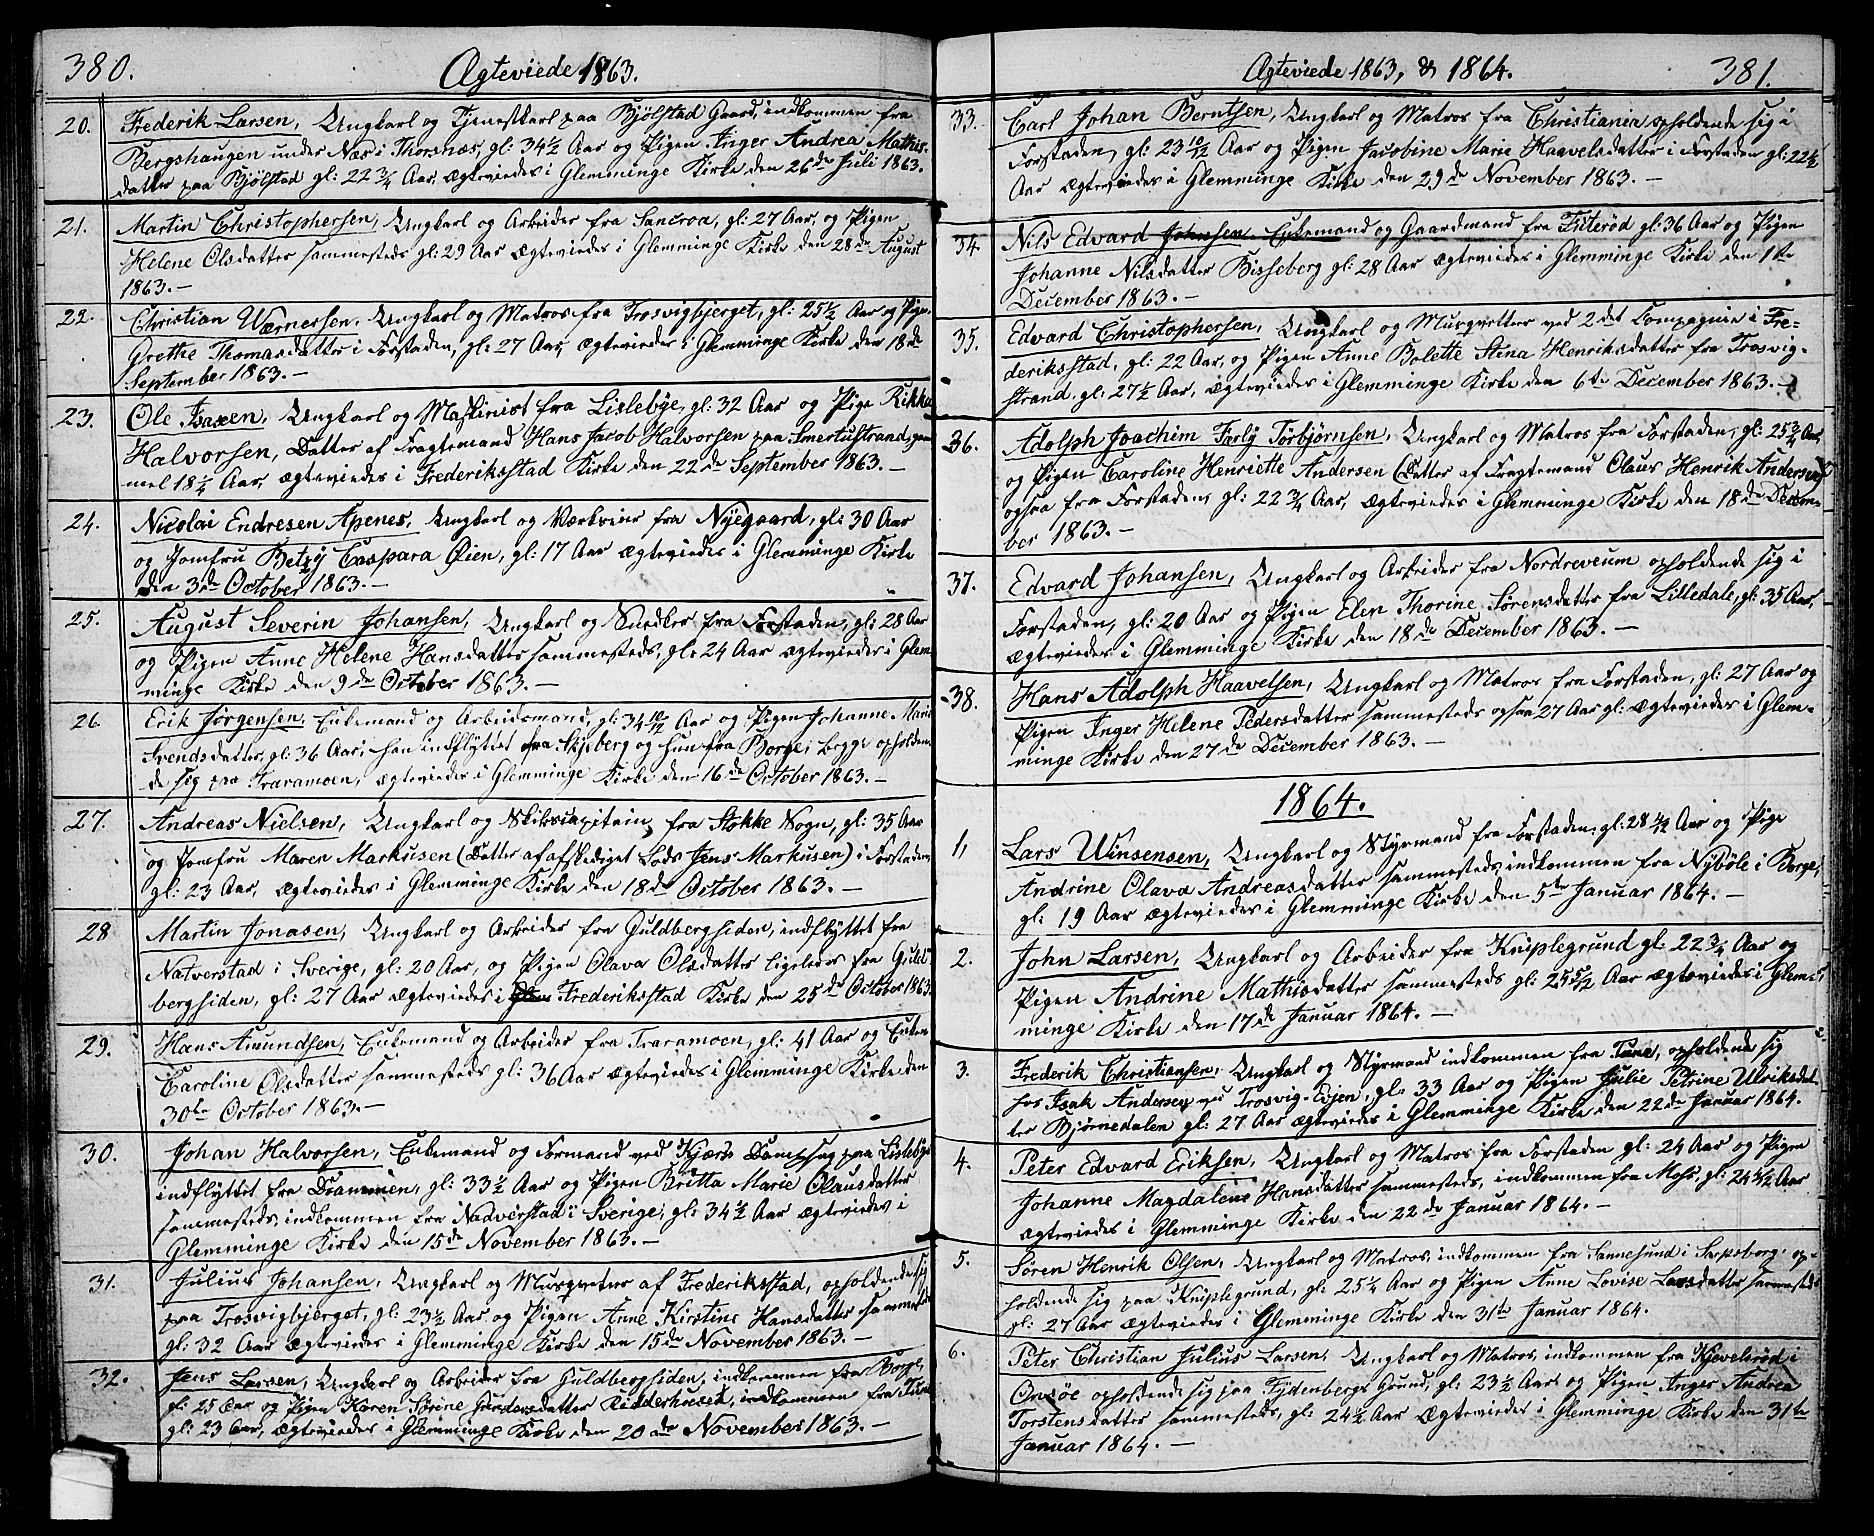 380.
Ægteviede 1863.
20. Frederik Larsen, Ungkarl og Tjenestkarl paa Bjölstad Gaard, indkommen fra
Bergshaugen under Næs i Thorsnæs, gl: 34½ Aar og Pigen Inger Andrea Mathis-
datter paa Bjölstad gl: 22¾ Aar, ægteviedes i Glemminge Kirke den 26de Juli 1863.
21. Martin Christophersen, Ungkarl og Arbeider fra gl: 27 Aar, og Pigen
Helene Olsdatter sammesteds gl: 29 Aar ægteviedes i Glemminge Kirke den 28de August
1863.—
22. Christian Wærnessen, Ungkarl og Matros fra Trosvigbjerget, gl: 25½ Aar og Pigen
Grethe Thomasdatter i Forstaden, gl: 27 Aar, ægteviedes i Glemminge Kirke den 18de
September 1863.—
23. Ole Isaxen, Ungkarl og Maskinist fra Lislebye, gl: 32 Aar og Pige Rikka
Halvorsen, Datter af Fragtemand Hans Jacob Halvorsen paa Smertustrand, gam-
mel 18¼ Aar, ægteviedes i Frederiksstad Kirke den 22de September 1863.—
24. Nicolai Endresen Apenes, Ungkarl og Værkeier fra Nyegaard, gl: 30 Aar
og Jomfru Betzy Caspara Øien, gl: 17 Aar ægteviedes i Glemminge Kirke
den 3de October 1863.—
25. August Severin Johansen, Ungkarl og Snedker fra Forstaden, gl: 28 Aar
og Pigen Anne Helene Hansdatter sammesteds, gl: 24 Aar ægteviedes i Glem-
minge Kirke den 9de October 1863.—
26 Erik Jørgensen, Enkemand og Arbeidsmand, gl: 34 10/12 Aar og Pigen Johanne Marie
Svendsdatter, gl: 36 Aar; han indflyttet fra Skjeberg og hun fra Borge; begge opholden-
de sig paa Traramoen, ægteviedes i Glemminge Kirke den 16de October 1863.—
27. Andreas Nielsen, Ungkarl og Skibscapitain, fra Stokke Sogn, gl: 35 Aar
og Jomfru Maren Markusen (Datter af afskediget Lods Jens Markusen) i Forstaden,
gl: 23 Aar, ægteviedes i Glemminge Kirke den 18de October 1863.—
28 Martin Jonasen, Ungkarl og Arbeider fra Guldbergsiden, indflyttet fra
Natverstad i Sverige, gl: 20 Aar, og Pigen Olava Olsdatter ligeledes fra Guld-
bergsiden, gl: 27 Aar ægteviedes i Frederiksstad Kirke den 25de October 1863.
29. Hans Amundsen, Enkemand og Arbeider fra Traramoen, gl: 41 Aar og Enken
Caroline Olsdatter sammesteds gl: 36 Aar ægteviedes i Glemminge Kirke den
30te October 1863.—
30. Johan Halvorsen, Enkemand og Formand ved Kjærs Dampsag paa Lislebye
indflyttet fra Drammen, gl: 33½ Aar og Pigen Britta Marie Olausdatter
sammesteds, indkommen fra Nadverstad i Sverige, gl: 34½ Aar ægteviedes i
Glemminge Kirke den 15de November 1863.—
31. Julius Johansen, Ungkarl og Musqueteer af Frederiksstad, opholdende sig
paa Trosvigbjerget, gl: 23½ Aar, og Pigen Anne Kirstine Hansdatter sammesteds
gl: 32 Aar ægteviedes i Glemminge Kirke den 15de November 1863.—
32. Jens Larsen, Ungkarl og Arbeider fra Guldbergsiden, indkommen fra Borge,
gl: 25 Aar og Pigen Karen Sørine Gundersdatter Ridderhuset, indkommen fra Tune
gl: 23 Aar, ægteviedes i Glemminge Kirke den 20de November 1863.—
Ægteviede 1863, & 1864.
381.
33. Carl Johan Berntsen, Ungkarl og Matros fra Christiania opholdende sig i
Forstaden, gl: 23 10/12 Aar og Pigen Jacobine Marie Haavelsdatter i Forstaden gl: 22½
Aar ægteviedes i Glemminge Kirke den 29de November 1863.—
34. Nils Edvard Johnsen, Enkemand og Gaardmand fra Fiterød gl: 36 Aar og Pigen
Johanne Nilsdatter Bisseberg gl: 28 Aar ægteviedes i Glemminge Kirke den 1ste
December 1863.—
35. Edvard Christophersen, Ungkarl og Musqvetter ved 2det Compagnie i Fre-
deriksstad, gl: 22 Aar, og Pigen Anne Bolette Stina Henriksdatter fra Trosvig-
strand, gl: 27½ Aar, ægteviedes i Glemminge Kirke den 6te December 1863.—
36. Adolph Joachim Farly Torbjørnsen, Ungkarl og Matros fra Forstaden, gl: 25¾ Aar,
og Pigen Caroline Henriette Andersen (Datter af Fragtemand Claus Henrik Andersen)
ogsaa fra Forstaden, gl: 22¾ Aar, ægteviedes i Glemminge Kirke den 18de Decem-
ber 1863.—
37. Edvard Johansen, Ungkarl og Arbeider fra Nordreveum opholdende sig i
Forstaden, gl: 20 Aar og Pigen Elen Thorine Sörensdatter fra Lilledale, gl: 35 Aar,
ægteviedes i Glemminge Kirke den 18de December 1863.—
38. Hans Adolph Haavelsen, Ungkarl og Matros fra Forstaden, gl: 27 Aar og
Pigen Inger Helene Pedersdatter sammesteds ogsaa 27 Aar gl: ægteviedes i Glem-
minge Kirke den 27de December 1863.—
1864.
1, Lars Winsensen, Ungkarl og Styrmand fra Forstaden, gl: 28 Aar og Pige
Andrine Olava Andreasdatter sammesteds, indkommen fra Nyböle i Borge,
gl: 19 Aar ægteviedes i Glemminge Kirke den 5te Januar 1864.—
2. John Larsen, Ungkarl og Arbeider fra Kniplegrund gl: 22¾ Aar og
Pigen Andrine Mathisdatter sammesteds gl: 25 5/12 Aar ægteviedes i Glem-
minge Kirke den 17de Januar 1864.—
3. Frederik Christiansen, Ungkarl og Styrmand indkommen fra Tune, opholdende sig
hos Isak Andersen ved Trosvig-Edjen, gl: 33 Aar og Pigen Julie Petrine Ulriksdat-
ter Bjørnedalen gl: 27 Aar ægteviedes i Glemminge Kirke den 22de Januar 1864.
4. Peter Edvard Eriksen, Ungkarl og Matros fra Forstaden gl: 24 Aar og Pigen
Johanne Magdalene Hansdatter sammesteds, indkommen fra Moss, gl: 24 Aar
ægteviedes i Glemminge Kirke den 22de Januar 1864.—
5. Søren Henrik Olsen, Ungkarl og Matros, indkommen fra Sannesund i Sarpsborg, op-
holdende sig paa Kniplegrund, gl: 25¼ Aar og Pigen Anne Lovise Larsdatter sammesteds
gl: 27 Aar ægteviedes i Glemminge Kirke den 31te Januar 1864.
6. Peter Christian Julius Larsen, Ungkarl og Matros, indkommen fra Kjevelsrød i
Onsöe opholdende sig paa Fydenbergs Grund, gl: 23½ Aar og Pigen Anger Andrea
Torstensdatter sammesteds, gl: 24½ Aar ægteviedes i Glemminge Kirke den 31te
Januar 1864.—